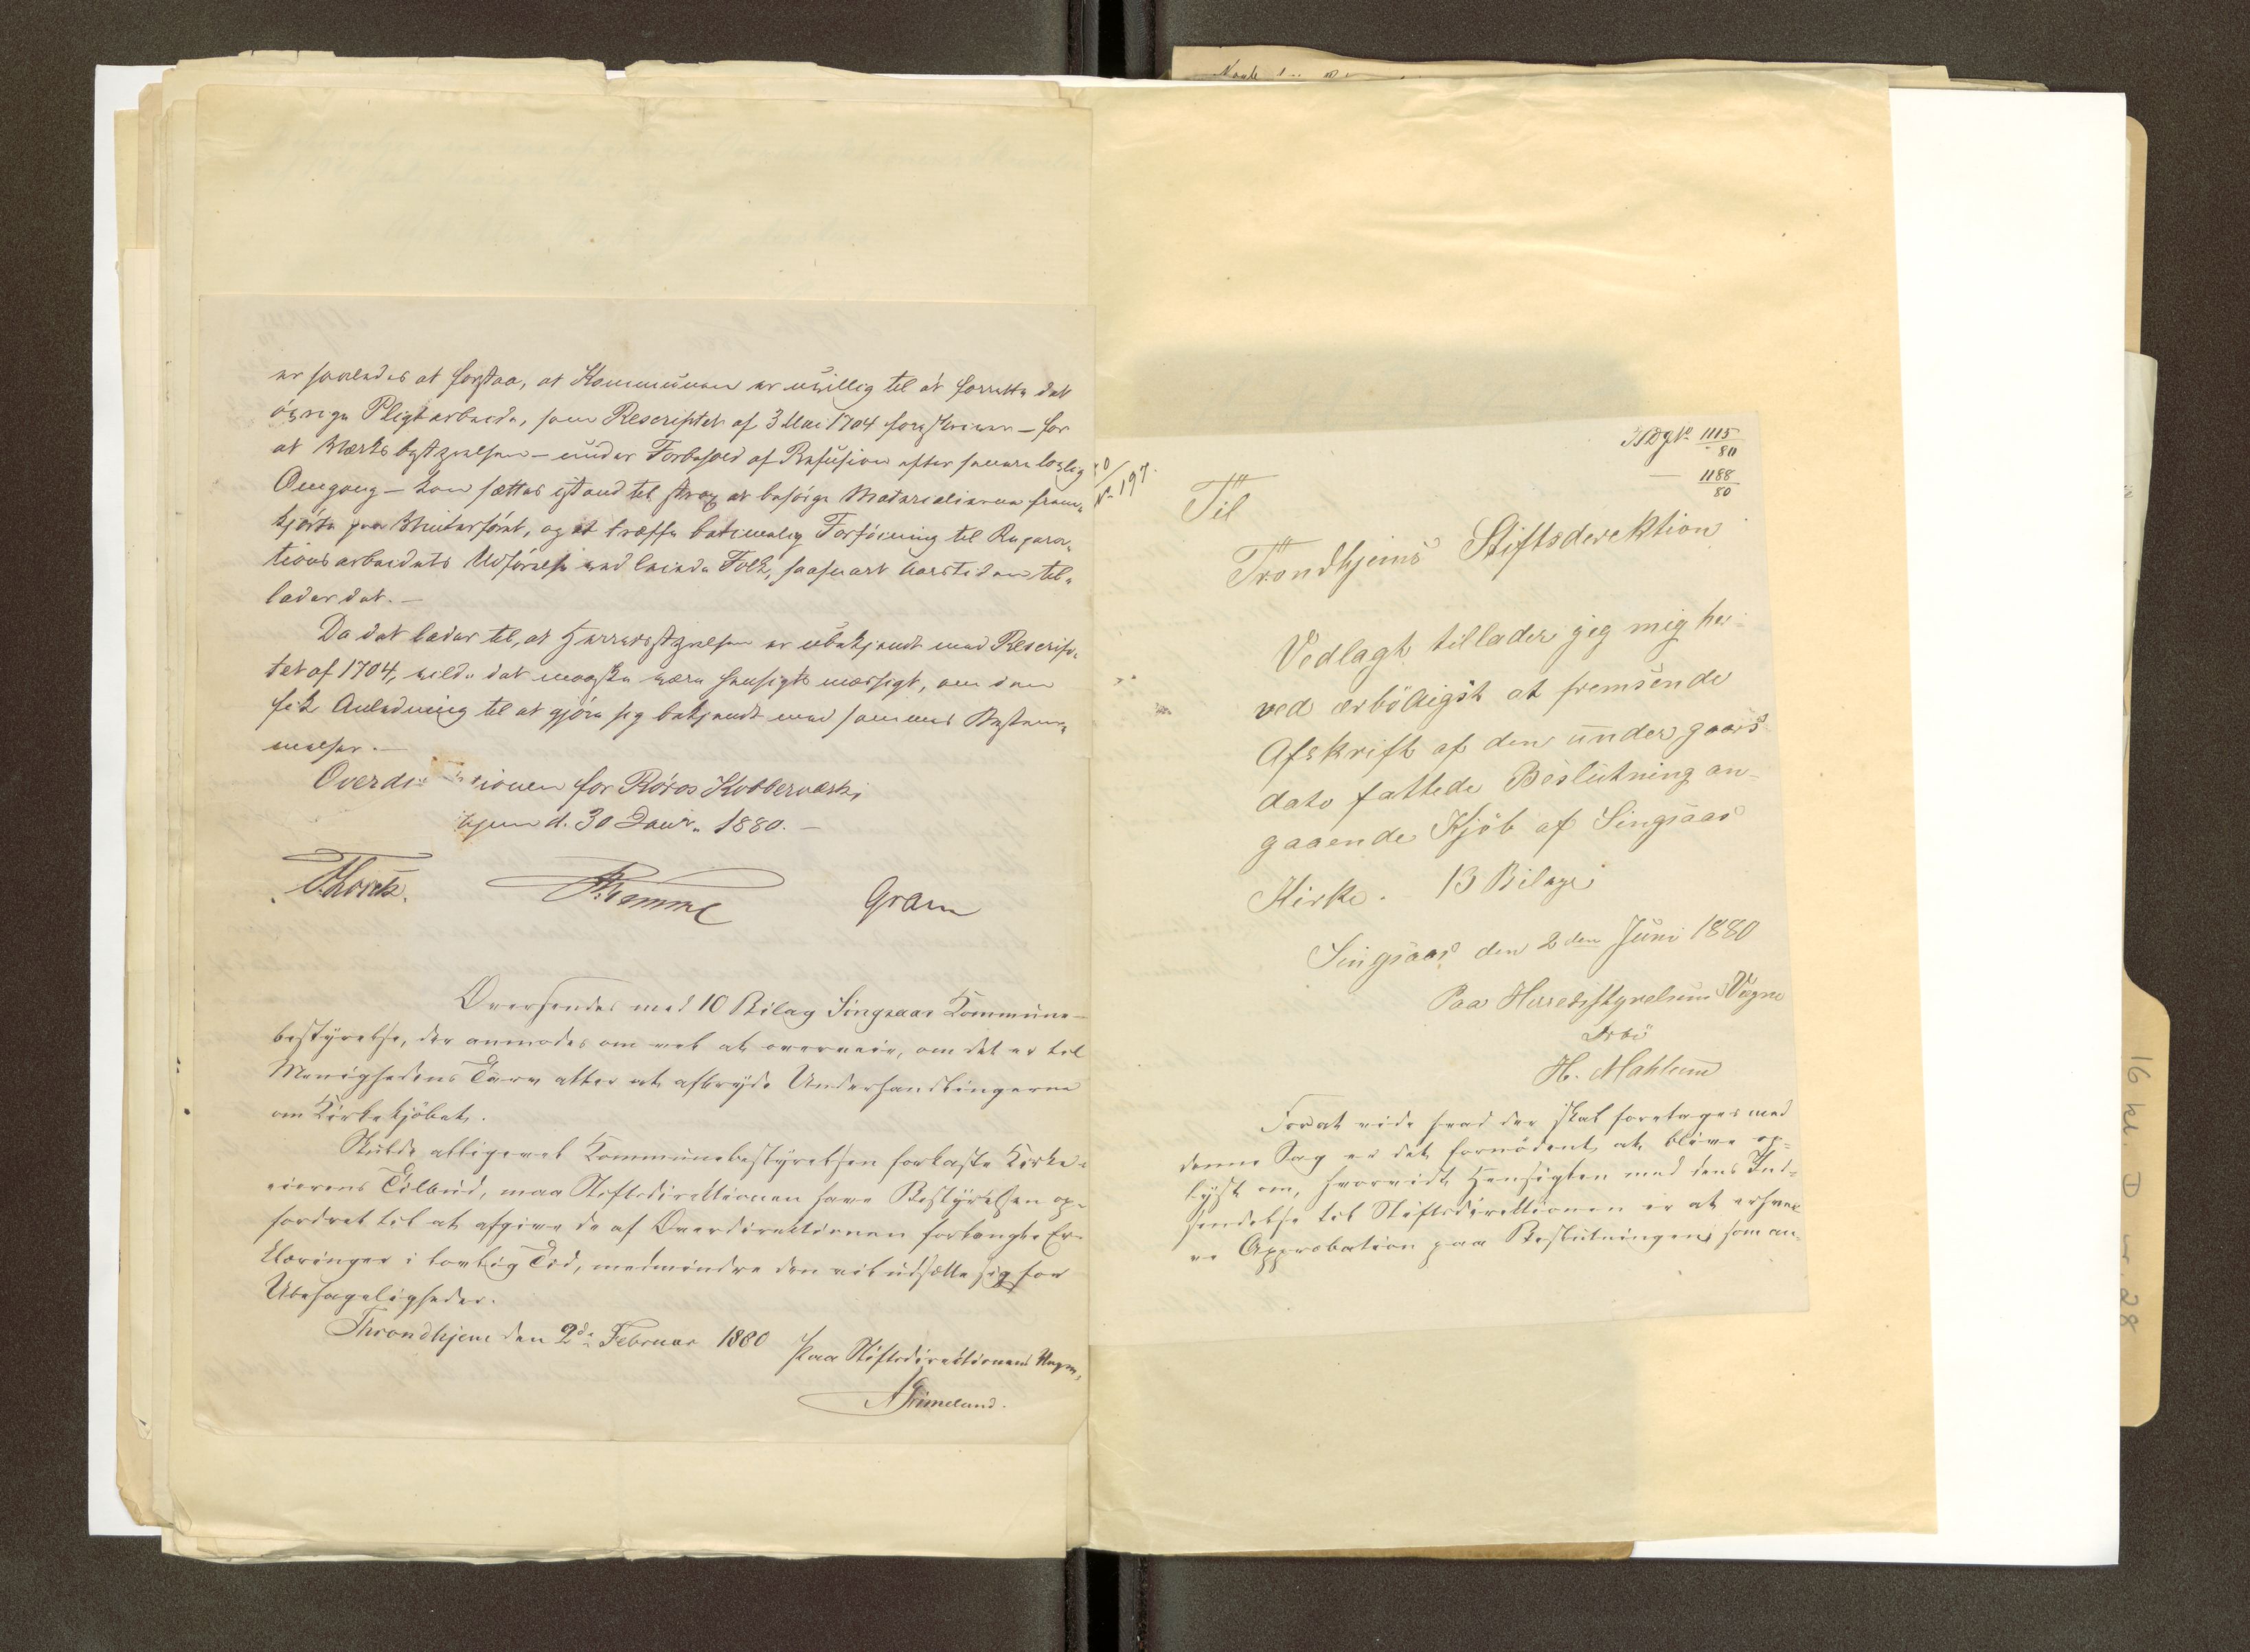 er saaledes at forstaa, at Kommunen er uvillig til at forrette det
øvrige Pligtarbeide, som Rescriptet af 3 Mai 1704 foreskriver – for
at Værksbestyrelsen – under Forbehold af Refusion efter senere lovlig
Omgang – kan sættes istand til strax at besørge Materialierne frem-
kjørte paa Vinterføret, og at træffe betimelig Forføining til Repara-
tionsarbeidets Udførelse ved leiede Folk, saasnart Aarstiden til-
lader det. –
Da det lader til, at Herredsstyrelsen er ubekjendt med Rescrip-
tet af 1704, vilde det maaske være hensigtsmæssigt, om den
fik Anledning til at gjøre sig bekjendt med sammes Bestem-
melser. –
Overdi tionen for Röros Kobberværk,
hjem d. 30 Janr. 1880. –
Gram
Oversendes med 10 Bilag Singsaas Kommune-
bestyrelse, der anmodes om vel at overveie, om det er til
Menighedens Tarv atter at afbryde Underhandlingerne
om Kirkekjøbet.
Skulde alligevel Kommunebestyrelsen forkaste Kirke-
eierens Tilbud, maa Stiftsdirektionen have Bestyrelsen op-
fordret til at afgive de af Overdirektionen forlangte Er-
klæringer i lovlig Tid, medmindre den vil udsætte sig for
Ubehageligheder.
Throndhjem den 2de Februar 1880
Paa Stiftsdirektionens Vegne,
Grimelund.
No 197.
1115/80
— 1188/80
Til
Trondhjems Stiftsderektion
Vedlagt tillader jeg mig her-
ved ærbödigst at fremsende
Afskrift af den under gaars
dato fattede Beslutning an-
gaaende Kjöb af Singsaas
Kirke. 13 Bilage
Singsaas den 2den Juni 1880
Paa Herredsstyrelsens Vegne
Ærbö
H. Mahlum
For at vide hvad der skal foretages med
denne Sag er det fornødent at blive op-
lyst om, hvorvidt Hensigten med dens Ind-
sendelse til Stiftsdirektionen er at erhver-
ve Approbation paa Beslutningen, som an-
16 kl. D nr. 28